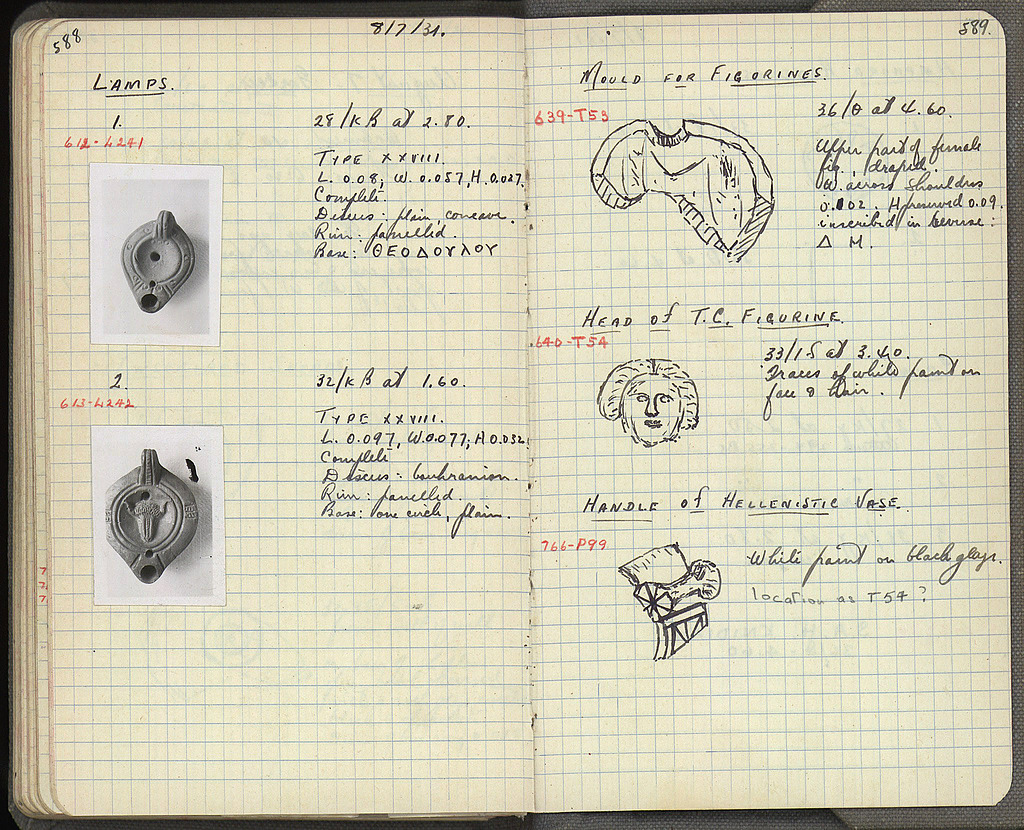 588
8/7/31.
LAMPS.
1.
28/ΚΒ at 2.80.
612-L241
TYPE XXVIII.
L. 0.08; W. 0.057, H. 0.027.
Complete.
Discus: plain, concave.
Rim: panelled.
Base: ΘΕΟΔΟΥΛΟΥ
2.
32/ΚΒ at 1.60.
613-L242
TYPE XXVIII.
L. 0.097, W. 0.077, H. 0.032.
Complete
Discus: boukranion.
Rim: panelled.
Base: one circle, plain.
7
7
7
589.
MOULD FOR FIGORINES.
639-T53
36/Θ at 4.60.
Upper part of female
fig., draped.
W. across shoulders
0.102. H. preserved 0.09.
inscribed in reverse:
Δ Μ.
HEAD of T.C. FIGURINE.
640-T54
33/ΙΕ at 3.40.
Traces of white paint on
face & hair.
HANDLE of HELLENISTIC VASE.
766-P99
White paint on black glaze.
location as T54?